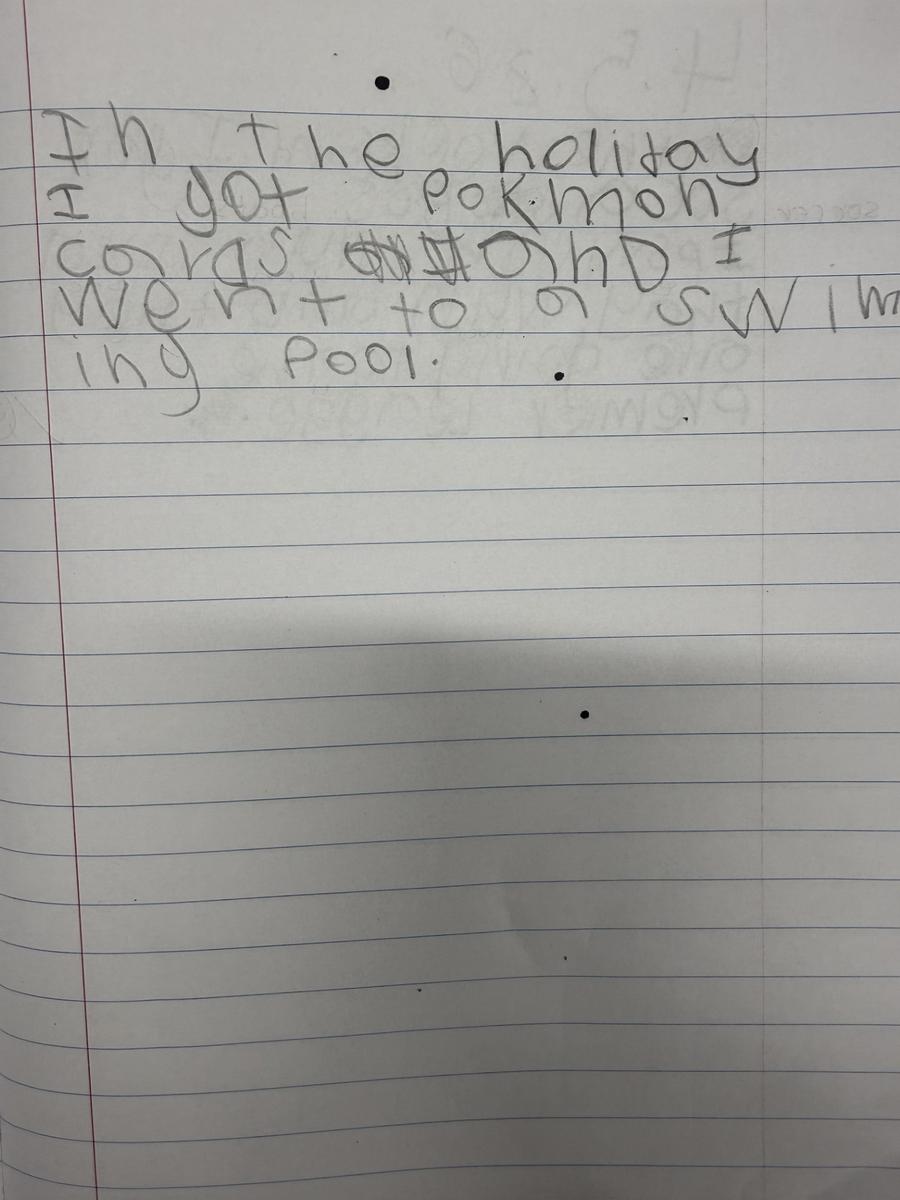 In the holiday
I got Pokmon
cards and I
went to a swim
ing Pool.